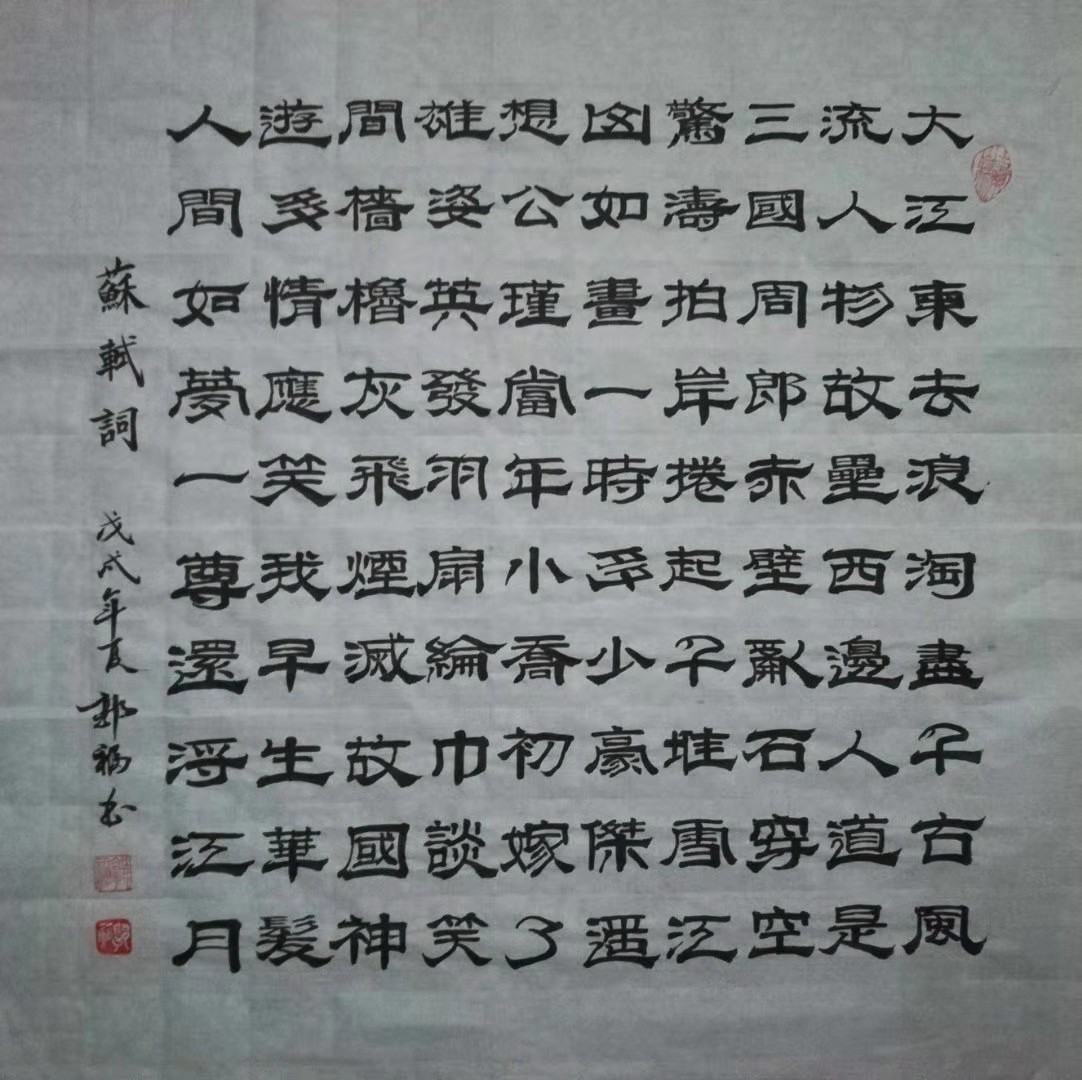 大江東去浪淘盡千古風
流人物故壘西邊人道是
三國周郎赤壁亂石穿空
驚濤拍岸捲起千堆雪江
山如畫一時多少豪傑遥
想公瑾當年小喬初嫁了
雄姿英發羽扇綸巾談笑
間檣櫓灰飛煙滅故國神
遊多情應笑我早生華髮
人間如夢一尊還酹江月
蘇軾詞 戊戌年夏 郭福书